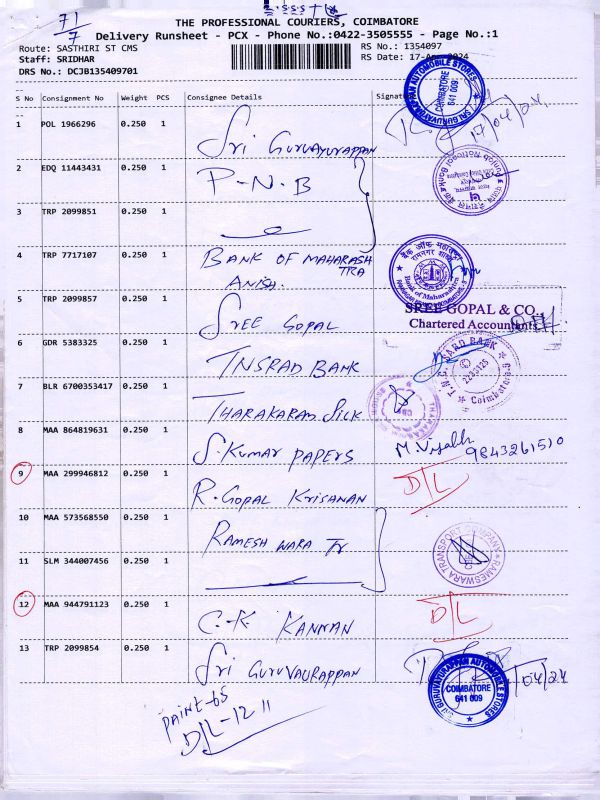 71/7
THE PROFESSIONAL COURIERS, COIMBATORE
Delivery Runsheet - PCX - Phone No.:0422-3505555 - Page No.:1
Route: SASTHIRI ST CMS
RS No.: 1354097
Staff: SRIDHAR
RS Date: 17-Apr-2024
DRS No.: DCJB135409701
S No Consignment No Weight PCS Consignee Details Signature
1 POL 1966296 0.250 1 Sri GURUVAYURAPPAN
17/04/24
2 EDQ 11443431 0.250 1 P-N.B
3 TRP 2099851 0.250 1
4 TRP 7717107 0.250 1 BANK OF MAHARASHTRA
ANISH.
5 TRP 2099857 0.250 1 SREE GOPAL
SREE GOPAL & CO.,
Chartered Accountants
6 GDR 5383325 0.250 1 TNSRAD BANK
7 BLR 6700353417 0.250 1 THARAKARAM SILK
8 MAA 864819631 0.250 1 S.KUMAR PAPERS
9843261510
9 MAA 299946812 0.250 1 R.GOPAL KRISANAN D/L
10 MAA 573568550 0.250 1 RAMESH WARA Tr
11 SLM 344007456 0.250 1
RAMESWARA TRANSPORT COMPANY
12 MAA 944791123 0.250 1 C.K KANNAN D/L
13 TRP 2099854 0.250 1 Sri GURUVAURAPPAN
SRI GURUVAYURAPPAN AUTOMOBILE STORES
COIMBATORE
641 009
04/24
PAINT-65
D/L-12 11